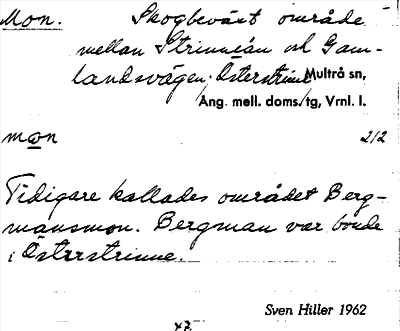 Mon. Skogbeväxt område
mellan Strinneån och Gam-
landsvägen; Österstrinne Multrå sn,
Ång. mell. doms/tg, Vrnl. l.
mo̲n 2/2
Tidigare kallades området Berg-
mansmon. Bergman var bonde
i Österstrinne.
Sven Hiller 1962